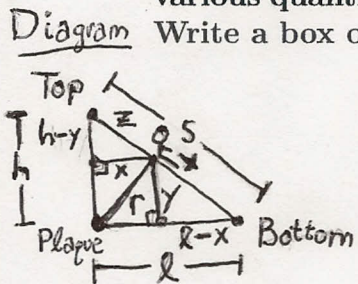 various quanti
Diagram Write a box o
Top
z
S
h-y
x
h
r
y
Plaque
l-x
Bottom
l